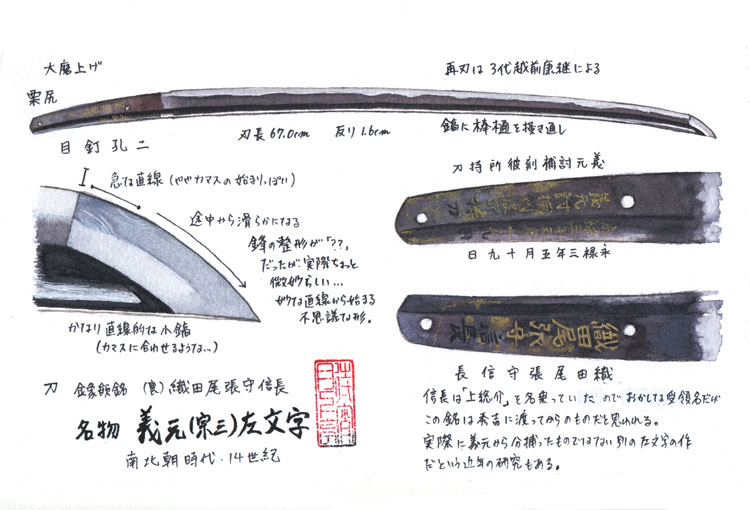 大磨上げ
栗尻
目釘孔二
刃長67.0cm 反り1.6cm
再刃は3代越前康継による
鎬に棒樋を掻き通し
急な直線(ややカマスの始まりっぽい)
途中から滑らかになる
鋒の整形が「??」
だったが実際ちょっと
微妙らしい…
妙な直線から始まる
不思議な形。
かなり直線的な小鎬
(カマスに合わせるような…)
義元討捕刻彼所持刀
永禄三年五月十九日
織田尾張守信長
織田尾張守信長
信長は「上総介」を名乗っていたのでおかしな受領名だが
この銘は秀吉に渡ってからのものだと思われる。
実際に義元から分捕ったものではない別の左文字の作
だという近年の研究もある。
刀 金象嵌銘 (裏)織田尾張守信長
名物 義元(宗三)左文字
南北朝時代・14世紀